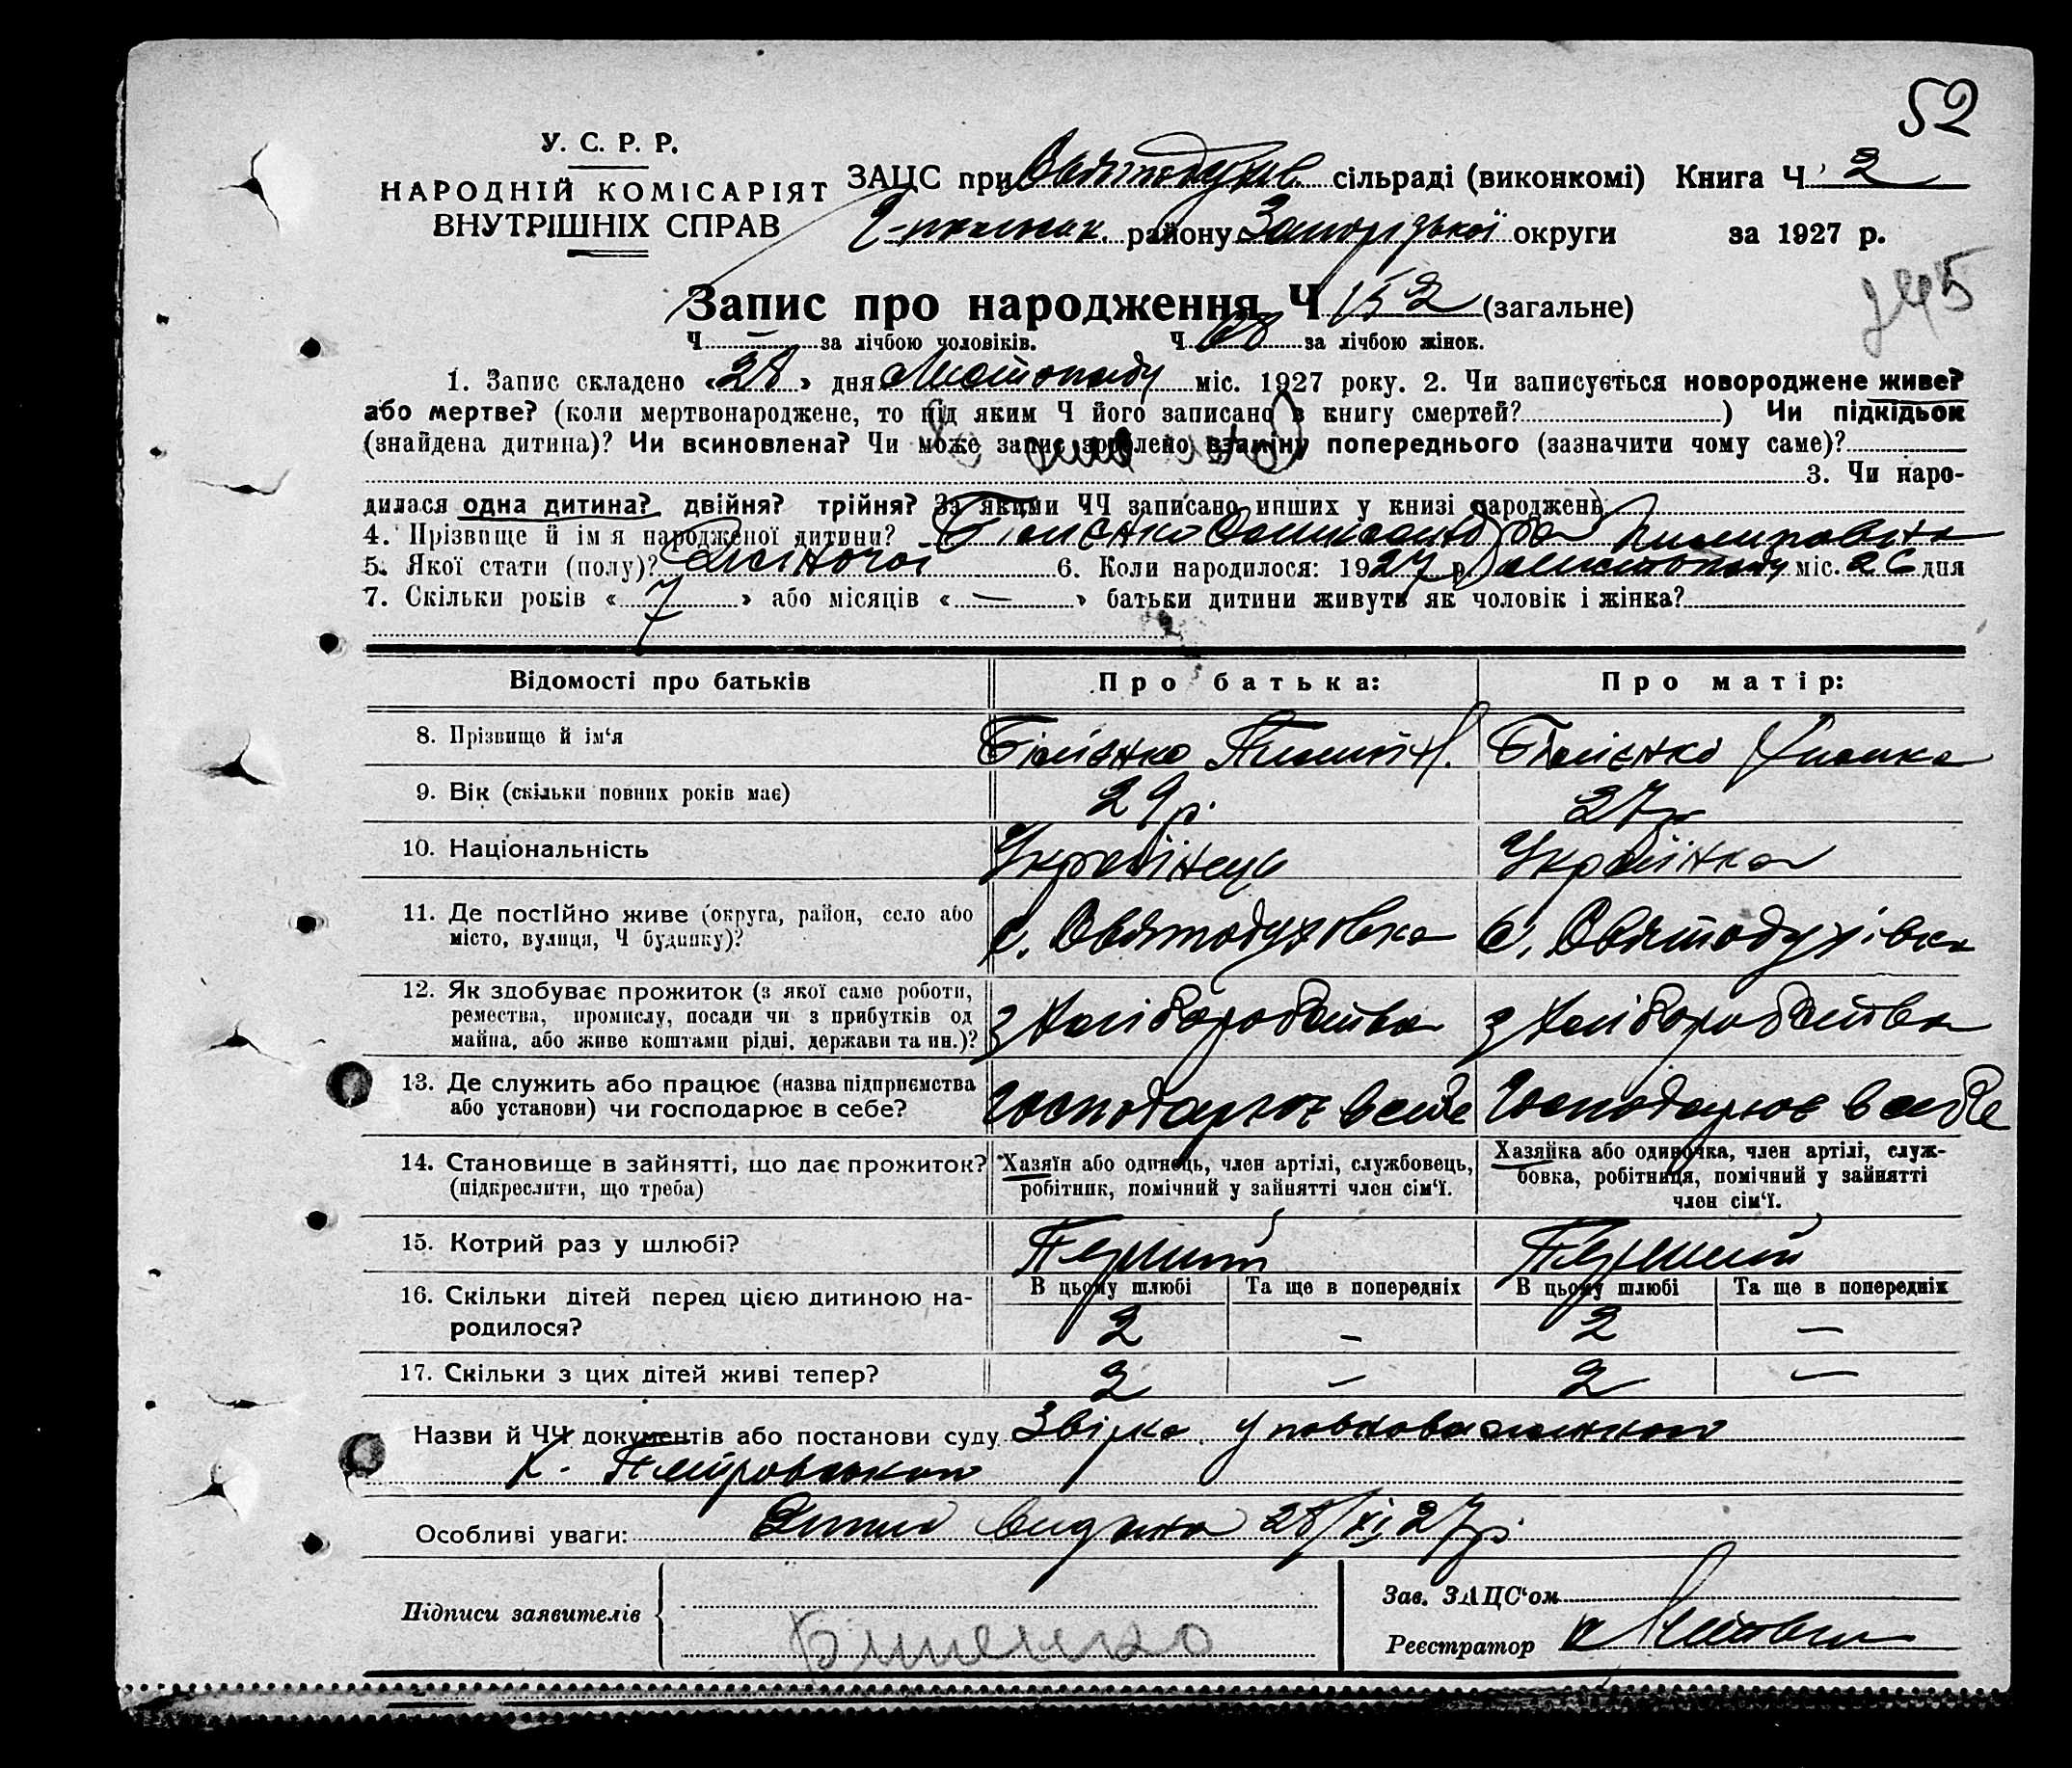 52
У. С. Р. Р.
НАРОДНІЙ КОМІСАРІЯТ
ВНУТРІШНІХ СПРАВ
ЗАЦС при Святодухів. сільраді (виконкомі) Книга Ч 2
району Запорізької округи за 1927 р.
Запис про народження Ч 152 (загальне)
Ч — за лічбою чоловіків. Ч 68 за лічбою жінок.
1. Запис складено «28» дня Листопаду міс. 1927 року. 2. Чи записується новороджене живе?
або мертве? (коли мертвонароджене, то під яким Ч його записано в книгу смертей? ) Чи підкідьок
(знайдена дитина)? Чи всиновлена? Чи може запис зроблено взаміну попереднього (зазначити чому саме)?
3. Чи наро-
дилася одна дитина? двійня? трійня? За якими ЧЧ записано инших у книзі народжень
4. Прізвище й ім'я народженої дитини? Білієнко Пилиповна
5. Якої стати (полу)? Жіночої 6. Коли народилося: 1927 р. Листопаду міс. 26 дня
7. Скільки років «7» або місяців «—» батьки дитини живуть як чоловік і жінка?
Відомості про батьків Про батька: Про матір:
8. Прізвище й ім'я Білієнко Пилип Білієнко
9. Вік (скільки повних років має) 29 р. 27 р
10. Національність Українець Українка
11. Де постійно живе (округа, район, село або
місто, вулиця, Ч будинку)? с. Святодуховка с. Святодухівка
12. Як здобуває прожиток (з якої само роботи,
ремества, промислу, посади чи з прибутків од
майна, або живе коштами рідні, держави та ин.)? з Хліборобства з Хліборобства
13. Де служить або працює (назва підприємства
або установи) чи господарює в себе? Господарює в себе Господарює в себе
14. Становище в зайнятті, що дає прожиток?
(підкреслити, що треба)
Хазяїн або одинець, член артілі, службовець,
робітник, помічний у зайнятті член сім'ї.
Хазяйка або одиночка, член артілі, служ-
бовка, робітниця, помічний у зайнятті
член сім'ї.
15. Котрий раз у шлюбі? Перший Перший
В цьому шлюбі Та ще в попередніх В цьому шлюбі Та ще в попередніх
16. Скільки дітей перед цією дитиною на-
родилося? 2 — 2 —
17. Скільки з цих дітей живі тепер? 2 — 2 —
Назви й ЧЧ документів або постанови суду Звірка уповноваженого
х. Петровського
Особливі уваги: видана 28/XI 27 р.
Підписи заявителів
Билиенко
Зав. ЗАЦС'ом
Реєстратор